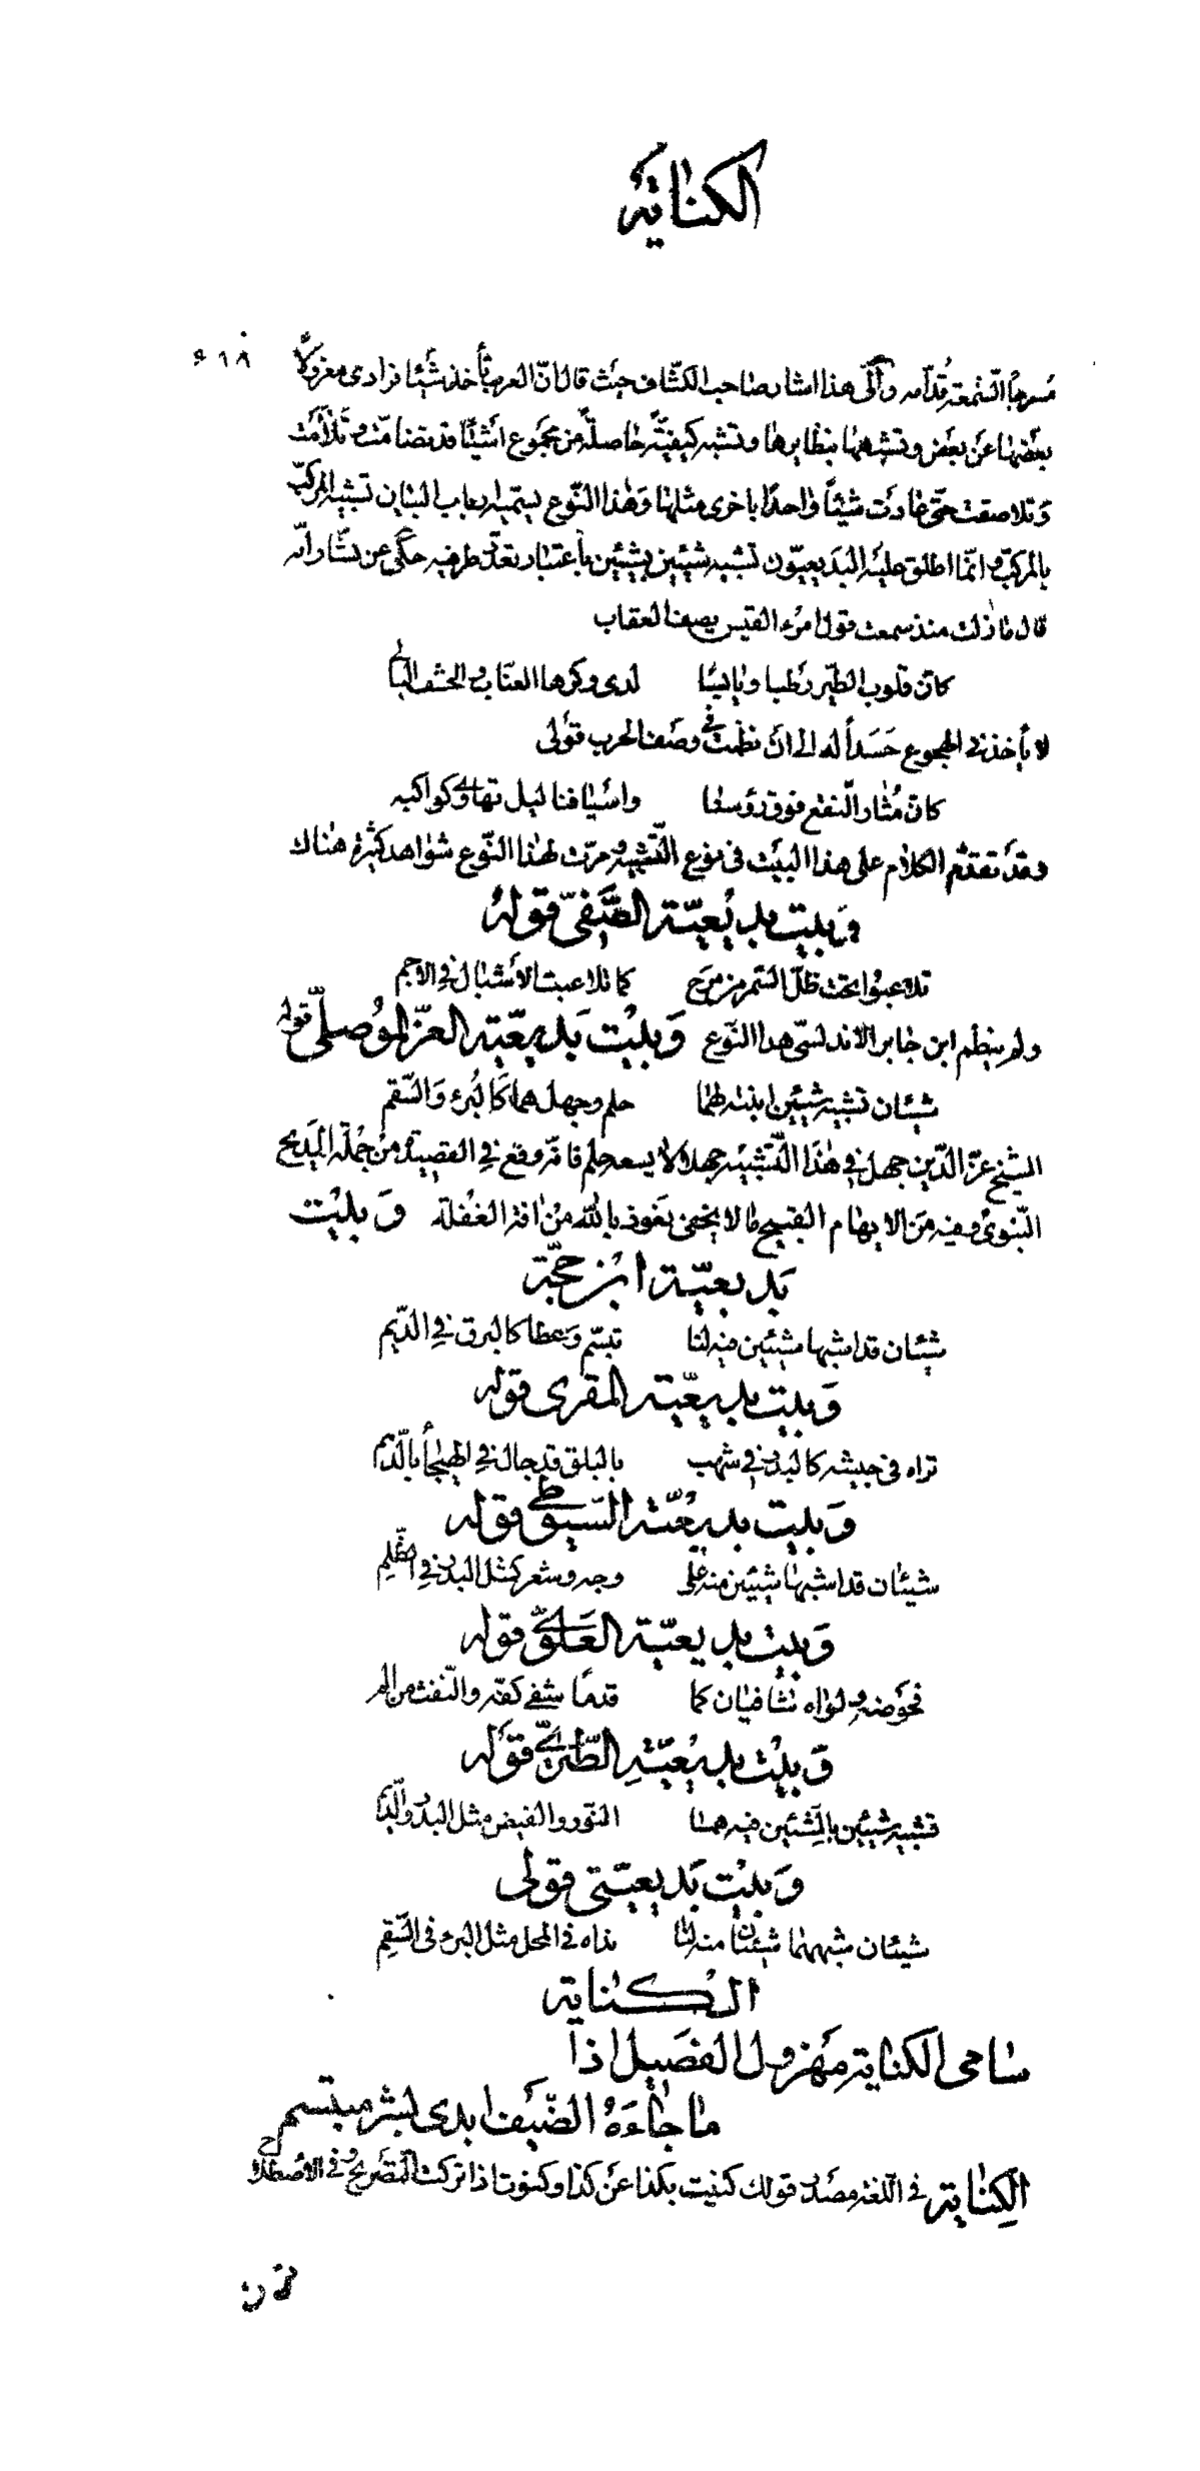 الكناية
مسرجا الشمعة قدامه والى هذا اشار صاحب الكشاف حيث قال ان العرب تأخذ شيئا فرادى معزولا
بعضها عن بعض وتشبهها بنظايرها وتشبه كيفية حاصلة من مجموع اشيئا قد تضامت وتلأمت
وتلاصقت حتى عادت شيئا واحدا باخرى مثلها وهذا النوع يسميه ارباب البيان تشبيه المركب
بالمركب وانما اطلق عليه البديعيون تشبيه شيئين بشيئين باعتبار تعدد طرفيه حكى عن بشار انه
قال ما زلت منذ سمعت قول امرء القيس يصف العقاب
كان قلوب الطير رطبا ويابسا لدى وكرها العناب والحشف البالى
لا يأخذنى الهجوع حسدا له الى ان نظمت فى وصف الحرب قولى
كان مثار النقع فوق رؤسنا واسيافنا ليل تهاوى كواكبه
وقد تقدم الكلام على هذا البيت فى نوع التشبيه ومرت لهذا النوع شواهد كثيرة هناك
وبيت بديعية الصفى قوله
تلاعبوا تحت ظل السمر من مرح كما تلاعبت الأشبال فى الاجم
ولم ينظم ابن جابر الاندلسى هذا النوع وبيت بديعية العز الموصلى قوله
شيئان تشبيه شيئين ابنته لهما حلم وجهل هما كالبرء والسقم
الشيخ عز الدين جهل فى هذا التشبيه جهلا لا يسعه حلم فانه وقع فى القصيدة من جملة المديح
النبوى وفيه من الايهام القبيح ما لا يخفى نعوذ بالله من افة الغفلة وبيت
بديعية ابن حجة
شيئان قد اشبها شيئين فيه لنا تبسم وعطا كالبرق فى الديم
وبيت بديعية المقرى قوله
تراه فى جيشه كالبدر فى شهب بالبلق قد جال فى الهيجأ بالدهم
وبيت بديعية السيوطى قوله
شيئان قد اشبها شيئين منه على وجه وشعر كمثل البدر فى الظلم
وبيت بديعية العلوى قوله
فحوضه ولواه شافيان كما قدما شفى كفه والنفث من الم
وبيت بديعية الطبرى قوله
تشبيه شيئين بالشيئين فيه هما النور والفيض مثل البدر والديم
وبيت بديعيتى قولى
شيئان شبههما شيئان منه لنا نداه فى المحل مثل البرء فى السقم
الكناية
سامى الكناية مهزول الفصيل اذا
ما جاءه الضيف ابدى بشر مبتسم
الكناية فى اللغة مصدر قولك كنيت بكذا عن كذا وكنوت اذا تركت التصريح وفى الاصطلاح